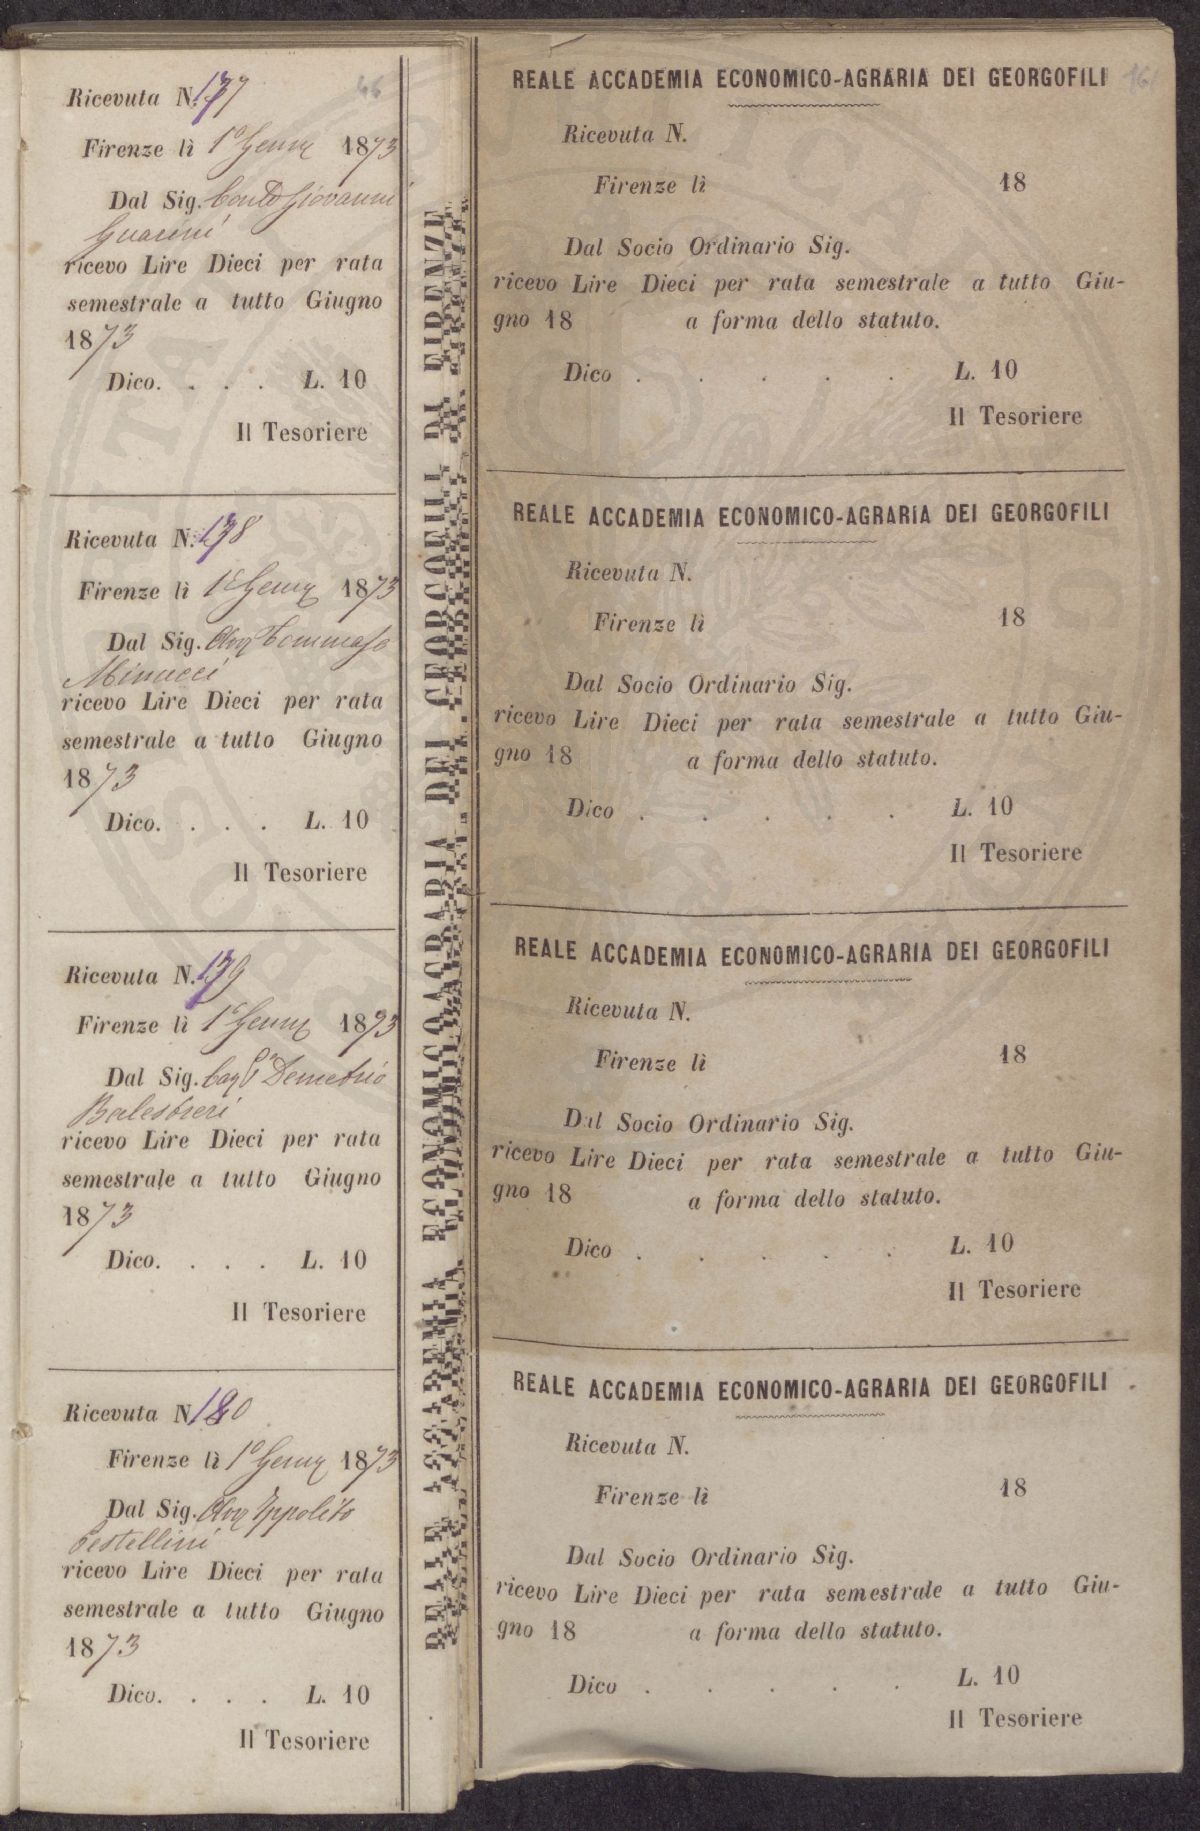 46
Ricevuta N. 137
Firenze lì 1º Genn 1873
Dal Sig. Conte Giovanni
Guarini
ricevo Lire Dieci per rata
semestrale a tutto Giugno
1873
Dico. . . . L. 10
Il Tesoriere
Ricevuta N. 138
Firenze lì 1º Genn 1873
Dal Sig. Avv Tommaso
Minucci
ricevo Lire Dieci per rata
semestrale a tutto Giugno
1873
Dico. . . . L. 10
Il Tesoriere
Ricevuta N. 139
Firenze lì 1º Genn 1873
Dal Sig. Cav Demetrio
Balestreri
ricevo Lire Dieci per rata
semestrale a tutto Giugno
1873
Dico. . . . L. 10
Il Tesoriere
Ricevuta N
Firenze lì 1º Genn 1873
Dal Sig. Avv Ippolito
Pestellini
ricevo Lire Dieci per rata
semestrale a tutto Giugno
1873
Dico. . . . L. 10
Il Tesoriere
REALE ACCADEMIA ECONOMICO-AGRARIA DEI GEORGOFILI DI FIRENZE
REALE ACCADEMIA ECONOMICO-AGRARIA DEI GEORGOFILI
Ricevuta N.
Firenze lì 18
Dal Socio Ordinario Sig.
ricevo Lire Dieci per rata semestrale a tutto Giu-
gno 18 a forma dello statuto.
Dico . . . . . L. 10
Il Tesoriere
REALE ACCADEMIA ECONOMICO-AGRARIA DEI GEORGOFILI
Ricevuta N.
Firenze lì 18
Dal Socio Ordinario Sig.
ricevo Lire Dieci per rata semestrale a tutto Giu-
gno 18 a forma dello statuto.
Dico . . . . . L. 10
Il Tesoriere
REALE ACCADEMIA ECONOMICO-AGRARIA DEI GEORGOFILI
Ricevuta N.
Firenze lì 18
Dal Socio Ordinario Sig.
ricevo Lire Dieci per rata semestrale a tutto Giu-
gno 18 a forma dello statuto.
Dico . . . . . L. 10
Il Tesoriere
REALE ACCADEMIA ECONOMICO-AGRARIA DEI GEORGOFILI
Ricevuta N.
Firenze lì 18
Dal Socio Ordinario Sig.
ricevo Lire Dieci per rata semestrale a tutto Giu-
gno 18 a forma dello statuto.
Dico . . . . . L. 10
Il Tesoriere